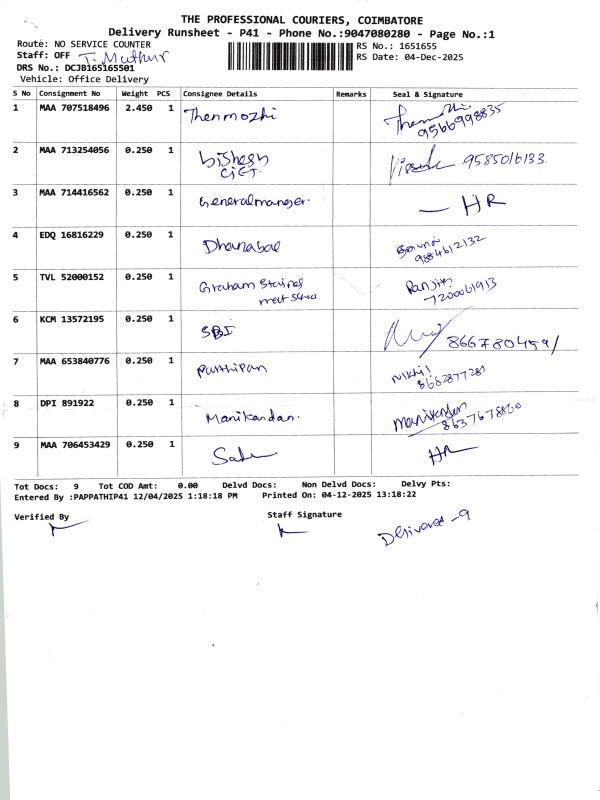 THE PROFESSIONAL COURIERS, COIMBATORE
Delivery Runsheet - P41 - Phone No.:9047080280 - Page No.:1
Route: NO SERVICE COUNTER
RS No.: 1651655
Staff: OFF T. Muthur
RS Date: 04-Dec-2025
DRS No.: DCJB165165501
Vehicle: Office Delivery
S No Consignment No Weight PCS Consignee Details Remarks Seal & Signature
1 MAA 707518496 2.450 1 Thenmozhi
9566998835
2 MAA 713254056 0.250 1 9585016133
3 MAA 714416562 0.250 1 Generalmanager. — HR
4 EDQ 16816229 0.250 1 Dhanabal
9884612132
5 TVL 52000152 0.250 1 Graham Staines Ranjith
7200061913
6 KCM 13572195 0.250 1 SBI
7 MAA 653840776 0.250 1 Parthipan Nikhil
8682877281
8 DPI 891922 0.250 1 Manikandan. Manikandan
9 MAA 706453429 0.250 1 HR
Tot Docs: 9 Tot COD Amt: 0.00 Delvd Docs: Non Delvd Docs: Delvy Pts:
Entered By :PAPPATHIP41 12/04/2025 1:18:18 PM Printed On: 04-12-2025 13:18:22
Verified By Staff Signature
Delivered -9